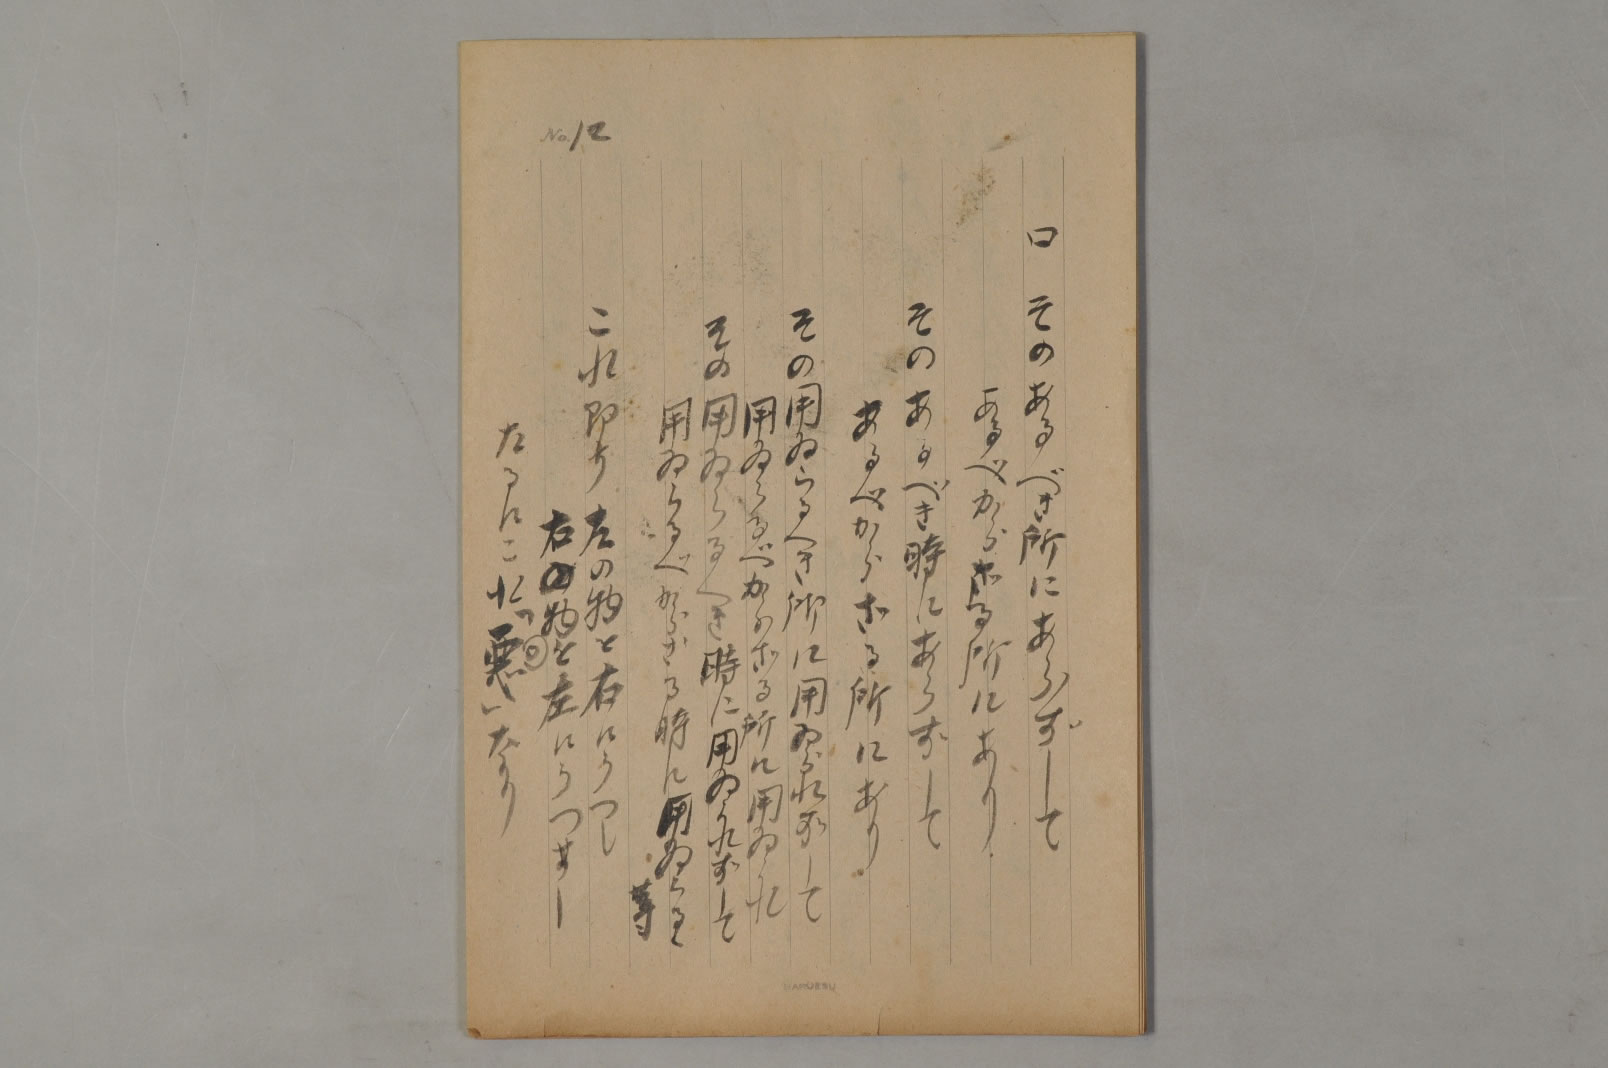 No.12
ロ そのあるべき所にあらずして
あるべからざる所にあり.
そのあるべき時にあらずして
あるべからざる所にあり.
その用ゐらるべき所に用ゐられずして
用ゐらるべからざる所に用ゐられ
その用ゐらるべき時に用ゐられずして
用ゐらるべからざる時に用ゐらると
等
これ即ち左の物を右にうつし
右の物を左にうつせし
なるにこれ「悪」なり
MARUZEN